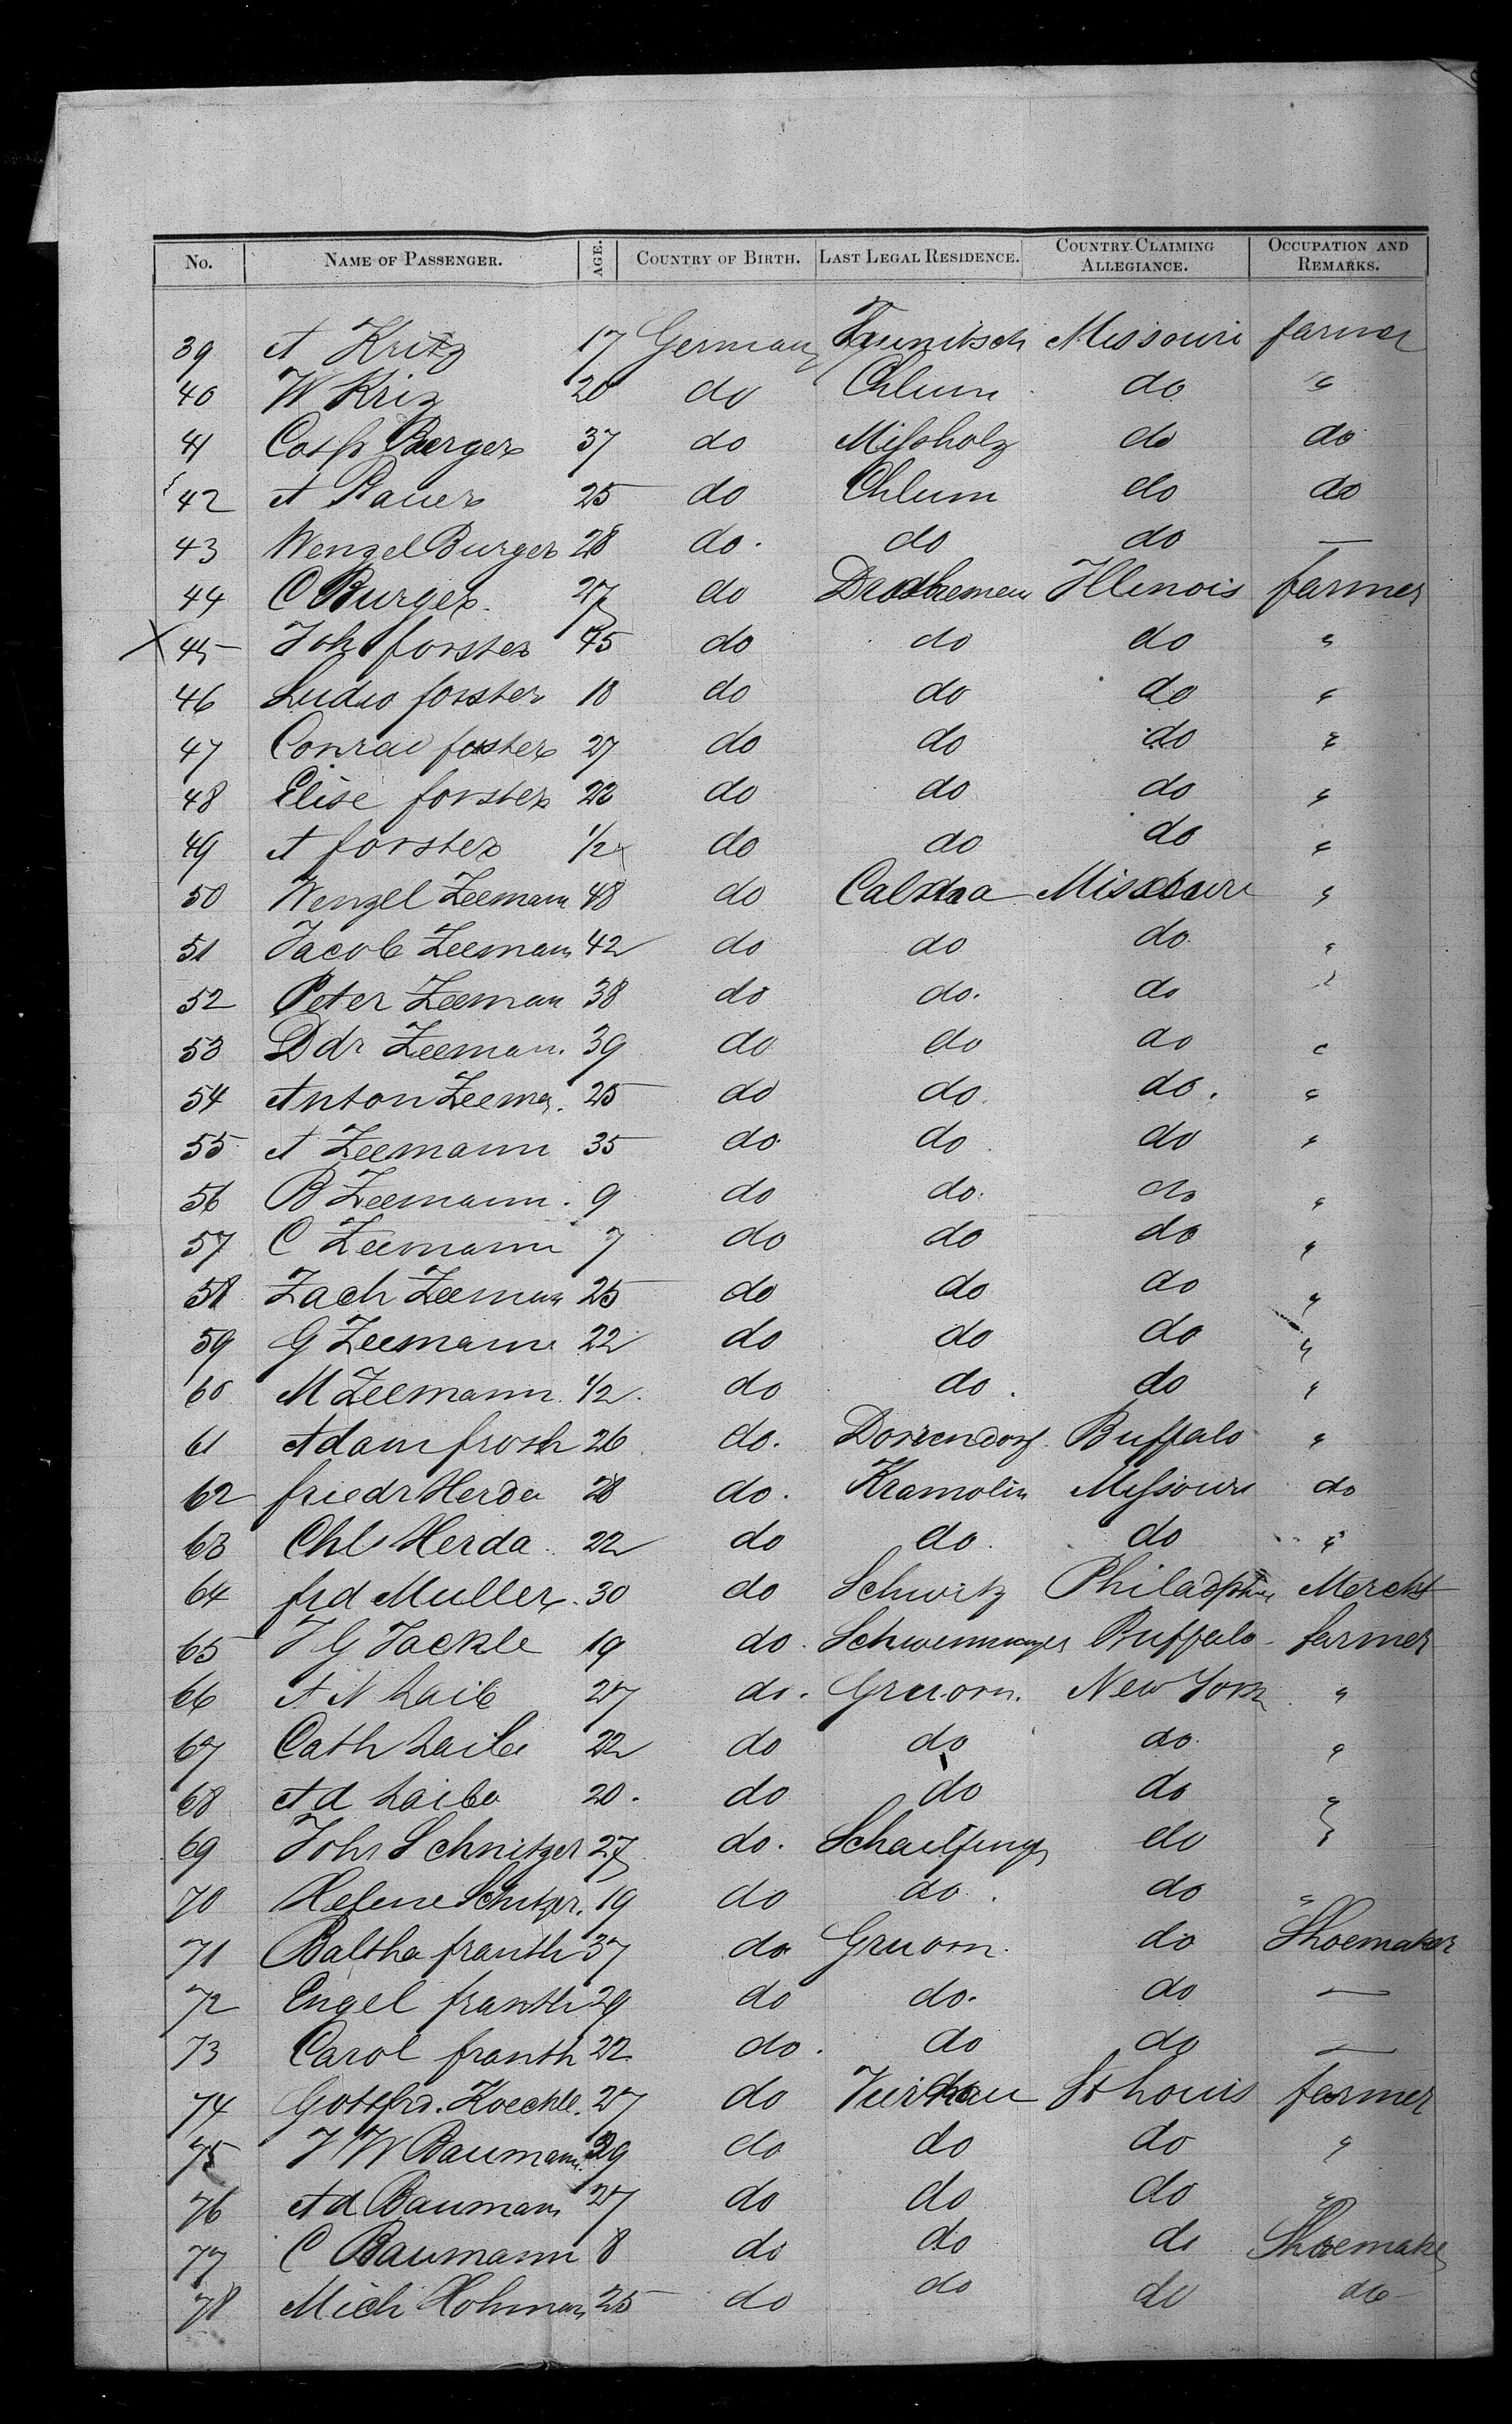 No. NAME OF PASSENGER. AGE. COUNTRY OF BIRTH. LAST LEGAL RESIDENCE. COUNTRY CLAIMING ALLEGIANCE. OCCUPATION AND REMARKS.
39 A Kritz 17 Germany Missouri farmer
40 W Kriz 20 do Chlum do "
41 Casp Berger 37 do Missholz do do
42 A Bauer 25 do Chlum do do
43 Wenzel Burger 28 do. do do —
44 C Burger. 27 do Illinois farmer
X 45 Joh forster 45 do do do "
46 Ludw forster 18 do do do "
47 Conrad forster 27 do do do "
48 Elise forster 22 do do do "
49 A forster 1/2 do do do "
50 Wenzel Zeemann 48 do Missouri "
51 Jacob Zeemann 42 do do do "
52 Peter Zeeman 38 do do. do "
53 Ddr Zeeman. 39 do do do "
54 Anton Zeema. 25 do do. do. "
55 A Zeemann 35 do do. do "
56 B Zeemann. 9 do do. do "
57 C Zeemann 7 do do do "
58 Zach Zeeman 25 do do do "
59 G Zeemann 22 do do do "
60 M Zeemann. 1/2. do do. do "
61 Adam frosh 26 do. Dorrendorf. Buffalo "
62 friedr Herda 28 do. Kramolin Missouri do
63 Chl Herda. 22 do do. do "
64 frd Muller. 30 do Schwitz Philadphia Mercht
65 J G Jackle 19 do. Schwenningen Buffalo farmer
66 A N Laib 27 do. Gruorn. New York "
67 Cath Laib 22 do do do. "
68 Ad Laibe 20. do do do "
69 Johs Schnitzer 27 do. do "
70 Helene Schitzer. 19 do do. do "
71 Baltha franth 37 do Gruorn. do Shoemaker
72 Engel franth 29 do do. do —
73 Carol franth 22 do. do do —
74 Gottfrd. Koechle. 27 do St Louis farmer
75 J W Baumann. 29 do do do "
76 Ad Baumann 27 do do do "
77 C Baumann 8 do do do Shoemaker
78 Mich Hohman 25 do do do do